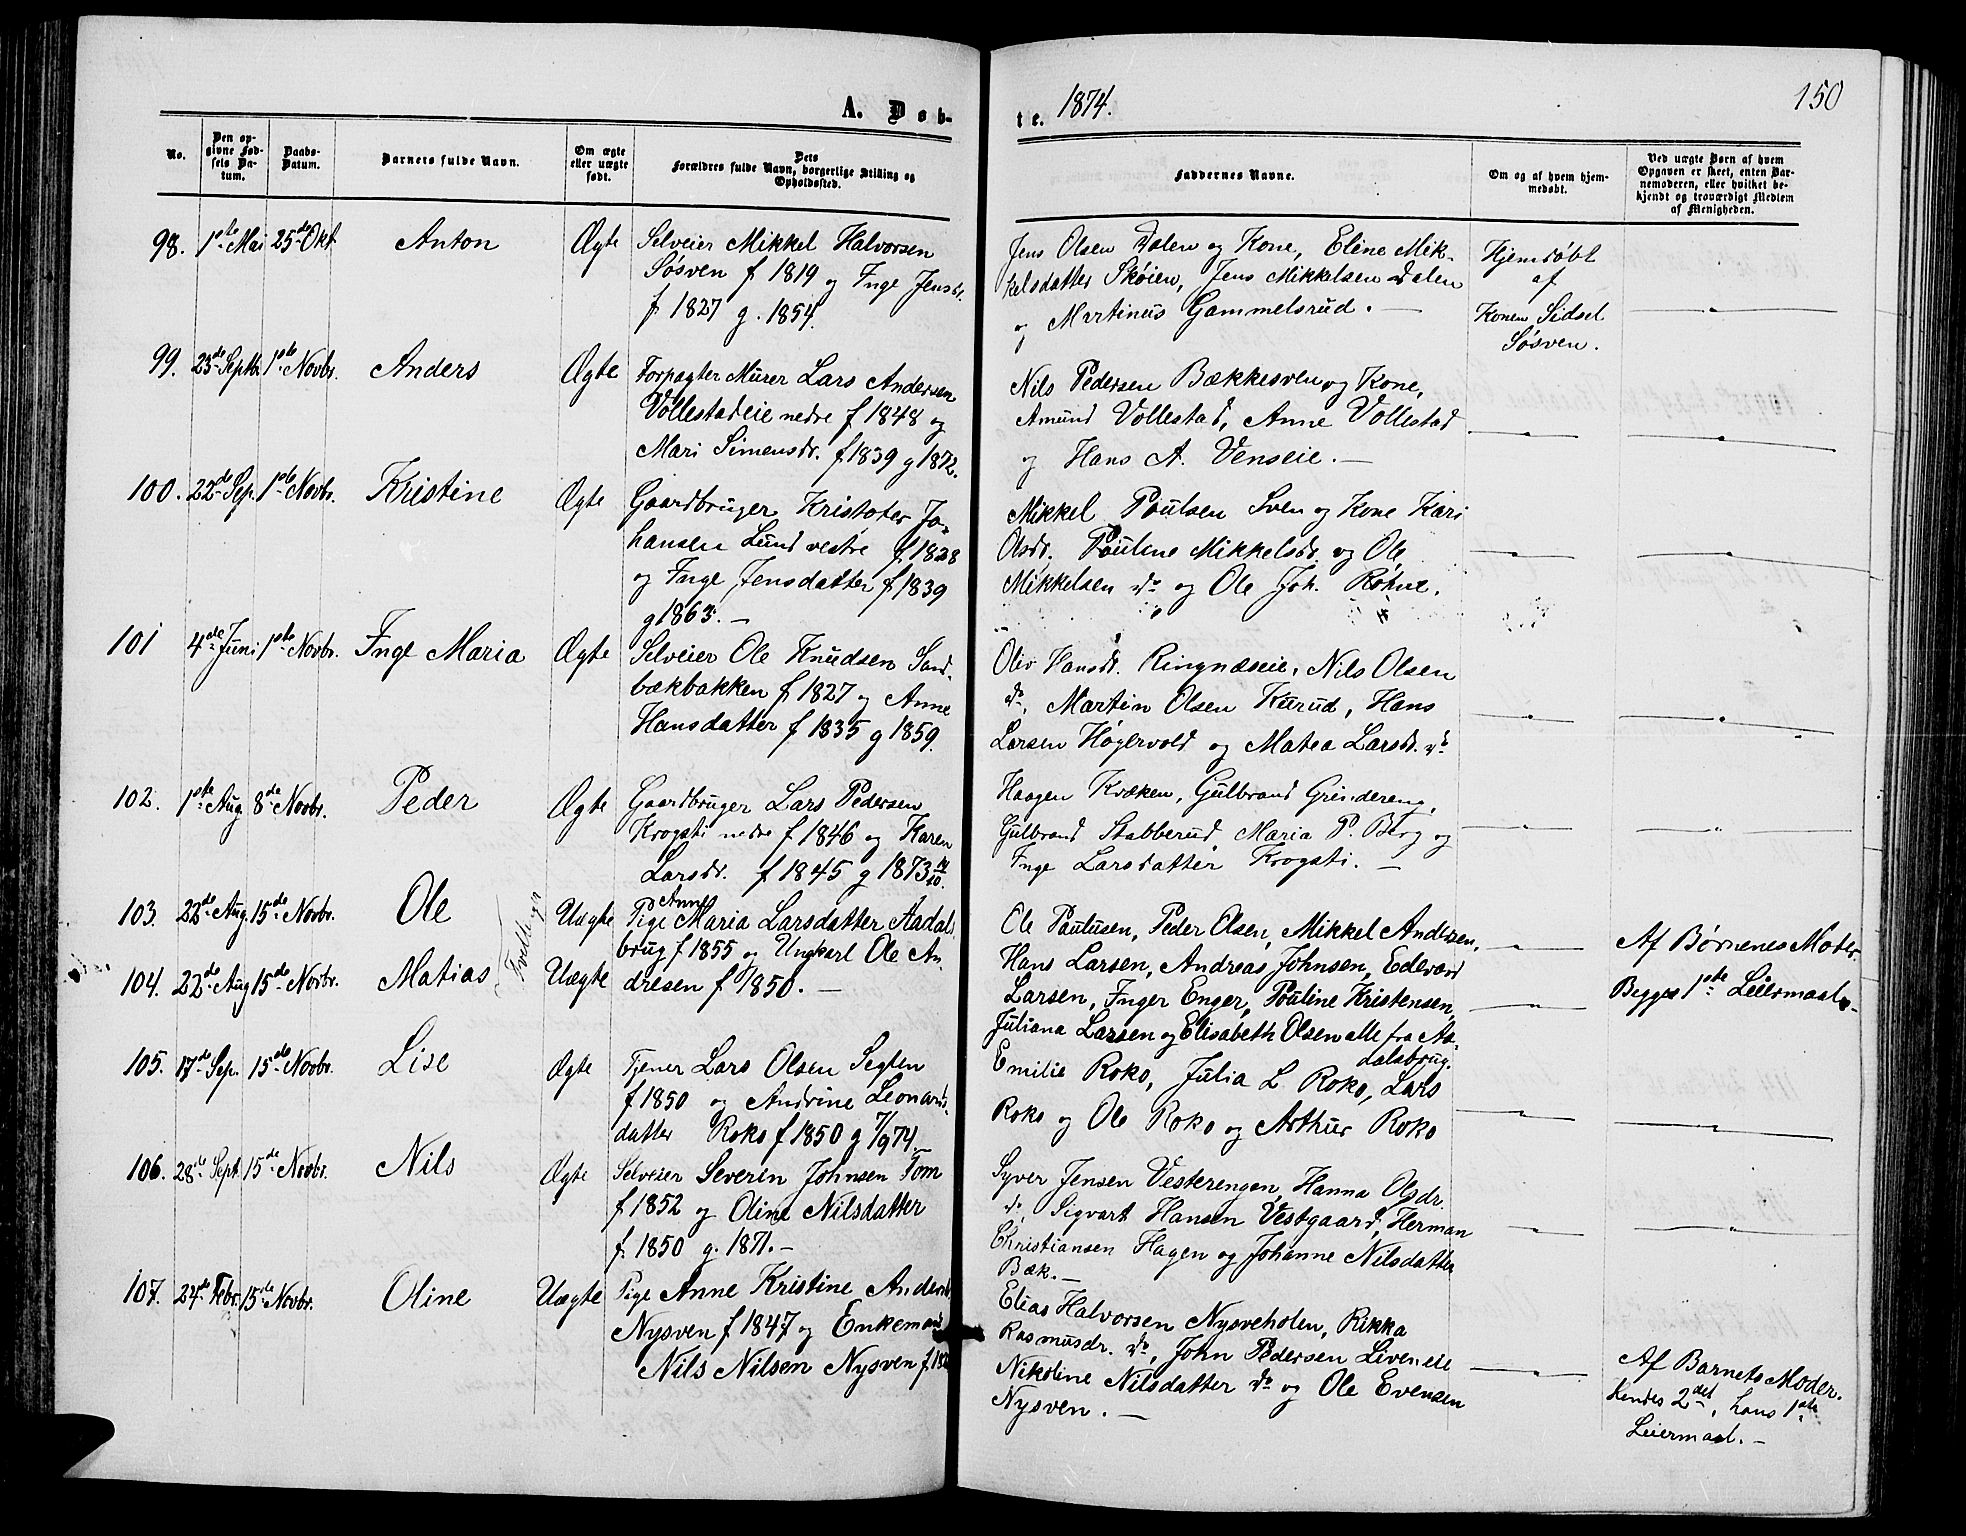 A. Døb-
te. 1874.
150
No.
Den opgivne Fødsels Datum.
Daabs-Datum.
Barnets fulde Navn.
Om ægte eller uægte født.
Dets Forældres fulde Navn, borgerlige Stilling og Opholdssted.
Faddernes Navne.
Om og af hvem hjemmedøbt.
Ved uægte Børn af hvem Opgaven er skeet, enten Barnemoderen, eller hvilket bekjendt og troværdigt Medlem af Menigheden.
98. 1ste Mai 25de Okt. Anton Ægte
Selveier Mikkel Halvorsen
Søsven f 1819 og Inge Jensdr.
f 1827 g. 1854.
Jens Olsen Dalen og Kone, Eline Mik-
kelsdatter Skøien, Jens Mikkelsen Dalen
og Martinus Gammelsrud. —
Hjemdøbt
af
Konen Sidsel
Søsven.
99. 23de Septbr. 1ste Novbr. Anders Ægte
Forpagter Murer Lars Andersen
Vollestadeie nedre f 1848 og
Mari Simensdr. f 1839 g 1872.
Nils Pedersen Bækkesven og Kone,
Amund Vollestad, Anne Vollestad
og Hans A. Venseie. —
100. 22de Sep. 1ste Novbr. Kristine Ægte
Gaardbruger Kristofer Jo-
hansen Lund vestre f. 1828
og Inge Jensdatter f 1839
g 1863. —
Mikkel Poulsen Sven og Kone Kari
Olsdr. Pouline Mikkelsdr. og Ole
Mikkelsen do og Ole Joh. Røhne.
101 4de Juni 1ste Novbr. Inge Maria Ægte
Selveier Ole Knudsen Sand-
bækbakken f 1827 og Anne
Hansdatter f 1835 g 1859.
Oliv Hansdr. Ringnæseie, Nils Olsen
do, Martin Olsen Kurud, Hans
Larsen Høgervold og Matea Larsdr. do
102. 1ste Aug. 8de Novbr. Peder Ægte
Gaardbruger Lars Pedersen
Krogsti nedre f 1846 og Karen
Larsdr. f 1845 g 1873 14/10.
Haagen Kræken, Gulbrand Grindereng,
Gulbrand Stabberud, Maria P. Berg og
Inge Larsdatter Krogsti. —
103. 22de Aug. 15de Novbr. Ole Uægte
Tvillinger
104. 22de Aug 15de Novbr. Matias Uægte
Anne
Pige Maria Larsdatter Aadals
brug f 1855 og Ungkarl Ole An-
dresen f 1850. —
Ole Paulusen, Peder Olsen, Mikkel Andersen,
Hans Larsen, Andreas Johnsen, Edevard
Larsen, Inger Enger, Pouline Kristensen,
Juliana Larsen og Elisabeth Olsen alle fra Aa-
dalsbrug.
Af Børnenes Moder.
Begges 1ste Leiermaal.
105. 17de Sep. 15de Novbr. Lise Ægte
Tjener Lars Olsen Seglen
f 1850 og Andrine Leonards-
datter Roko f 1850 g 7/9 74. —
Emilie Roko, Julia L Roko, Lars
Roko og Ole Roko og Arthur Roko
106. 28de Sept 15de Novbr. Nils Ægte
Selveier Severin Johnsen Tom
f 1852 og Oline Nilsdatter
f. 1850 g. 1871. —
Syver Jensen Vesterengen, Hanna Olsdr.
do, Sigvart Hansen Vestgaard, Herman
Christiansen Hagen og Johanne Nilsdatter
Bæk. —
107. 24de Febr. 15de Novbr. Oline Uægte
Pige Anne Kristine Anders
Nysven f 1847 og Enkemand
Nils Nilsen Nysven f. 182
Elias Halvorsen Nysveholen, Rikka
Rasmusdr. do, John Pedersen Liveneie
Nikoline Nilsdatter do og Ole Evensen
Nysven. —
Af Barnets Moder.
Hendes 2det, hans 1ste
Leiermaal. —